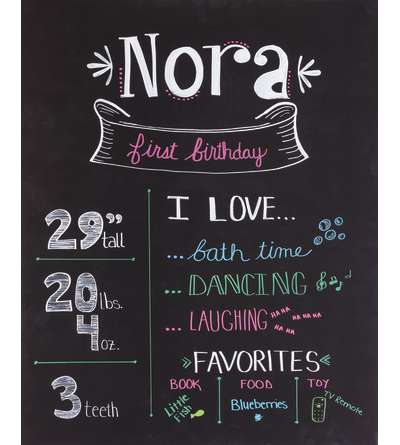 Nora
first birthday
29" tall
20 lbs.
4 oz.
3 teeth
I LOVE...
...bath time
...DANCING
...LAUGHING HA HA HA HA HA HA HA
FAVORITES
BOOK FOOD TOY
Little Fish Blueberries TV Remote